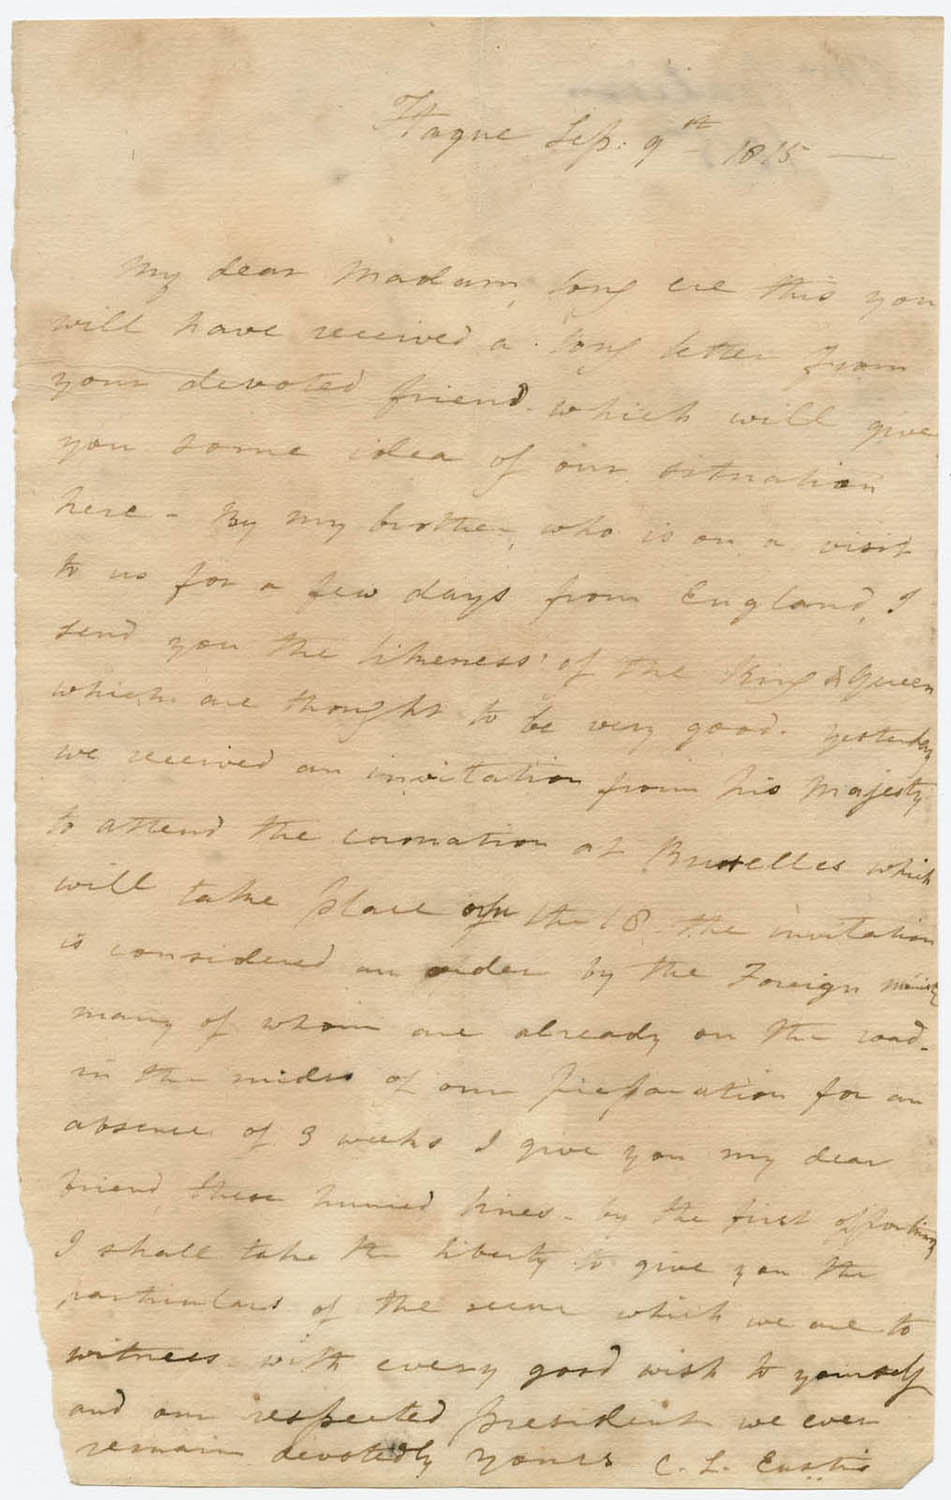 Hague Sep. 9th 1815 —
My dear Madam, long ere this you
will have received a long letter from
your devoted friend which will give
you some idea of our situation
here - By my brother, who is on a visit
to us for a few days from England, I
send you the likeness of the King & Queen
which are thought to be very good. Yesterday
we received an invitation from his Majesty
to attend the coronation at Bruxelles which
will take place the 18 the invitation
is considered an order by the Foreign
many of whom are already on the road.
in the midst of our preparation for an
absence of 3 weeks I give you my dear
friend these hurried lines - by the first opportunity
I shall take the liberty to give you the
particulars of the scene which we are to
witness with every good wish to yourself
and our respected president we ever
remain devotedly yours C. L. Eustis